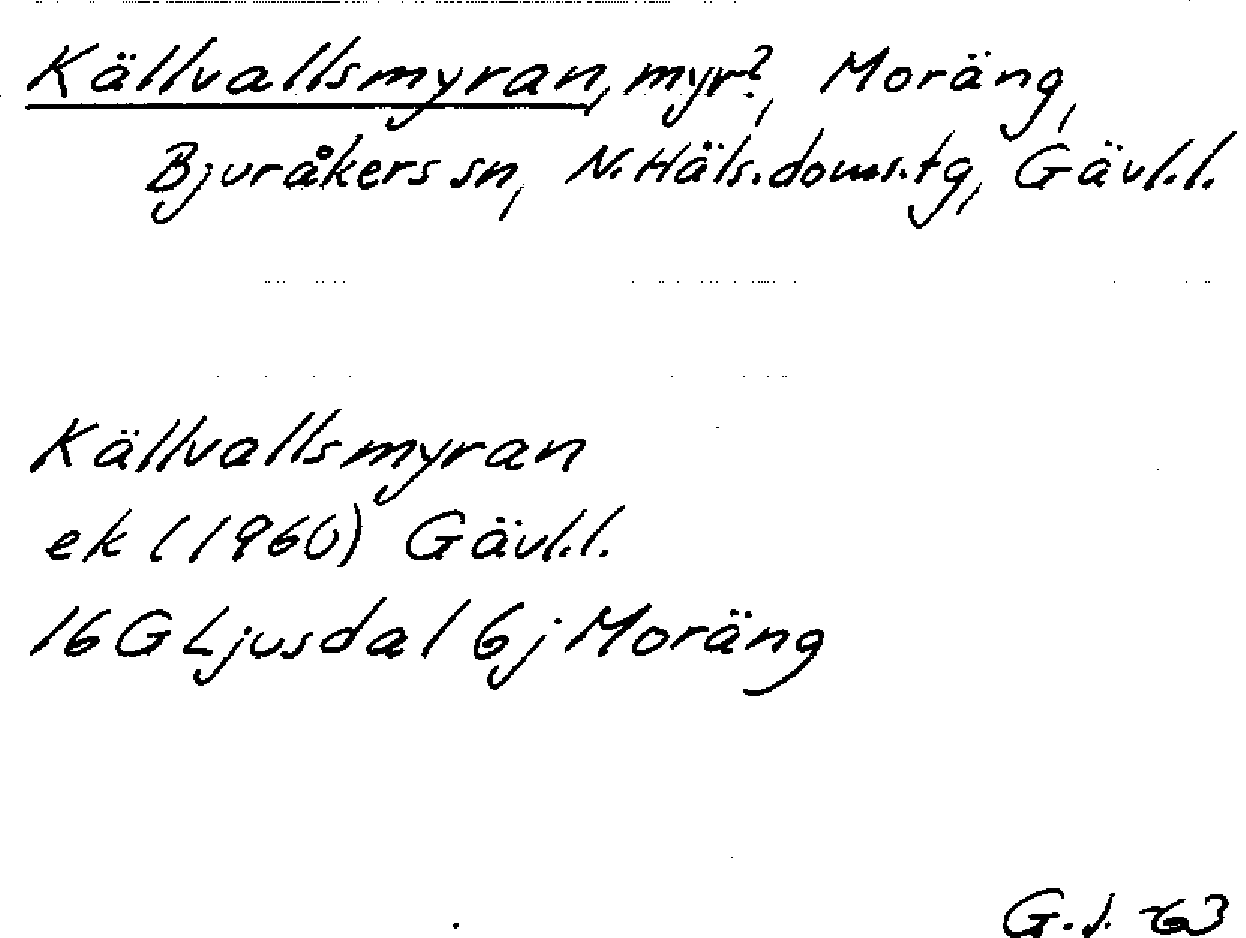 Källvallsmyran, myr?, Moräng,
Bjuråkers sn, N. Häls. doms. tg, Gävl. l.
Källvallsmyran
ek (1960) Gävl. l.
16 G Ljusdal 6j Moräng
G. J. 63